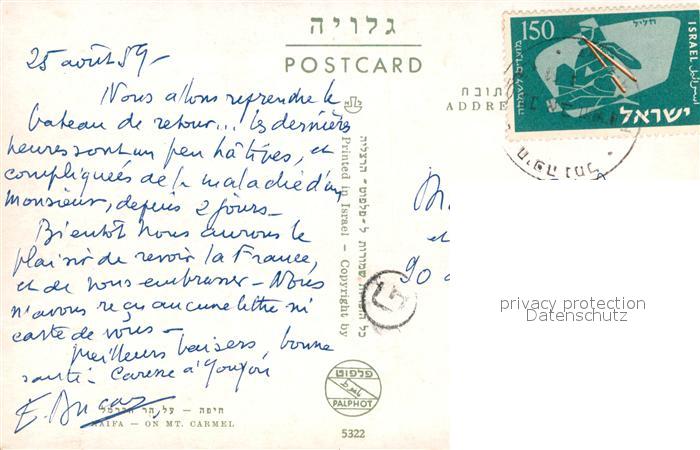 גלויה
POSTCARD
25 août 59 -
Nous allons reprendre le
bateau de retour... les dernières
heures sont un peu hâtives, et
compliquées de la maladie d'un
Monsieur, depuis 2 jours -
Bientôt nous aurons le
plaisir de revoir la France,
et de vous embrasser - Nous
n'avons reçu aucune lettre ni
carte de vous -
Meilleurs baisers, bonne
santé - Caresse à Youyou
חיפה – על הר הכרמל
HAIFA – ON MT. CARMEL
Printed in Israel – Copyright by
כל הזכויות שמורות ל"פלפוט" הרצליה
פלפוט
PALPHOT
5322
כתובת
ADDRE
150
חליל
ISRAEL
اسرائيل
מועדים לשמחה
ישראל
et
90
privacy protection
Datenschutz